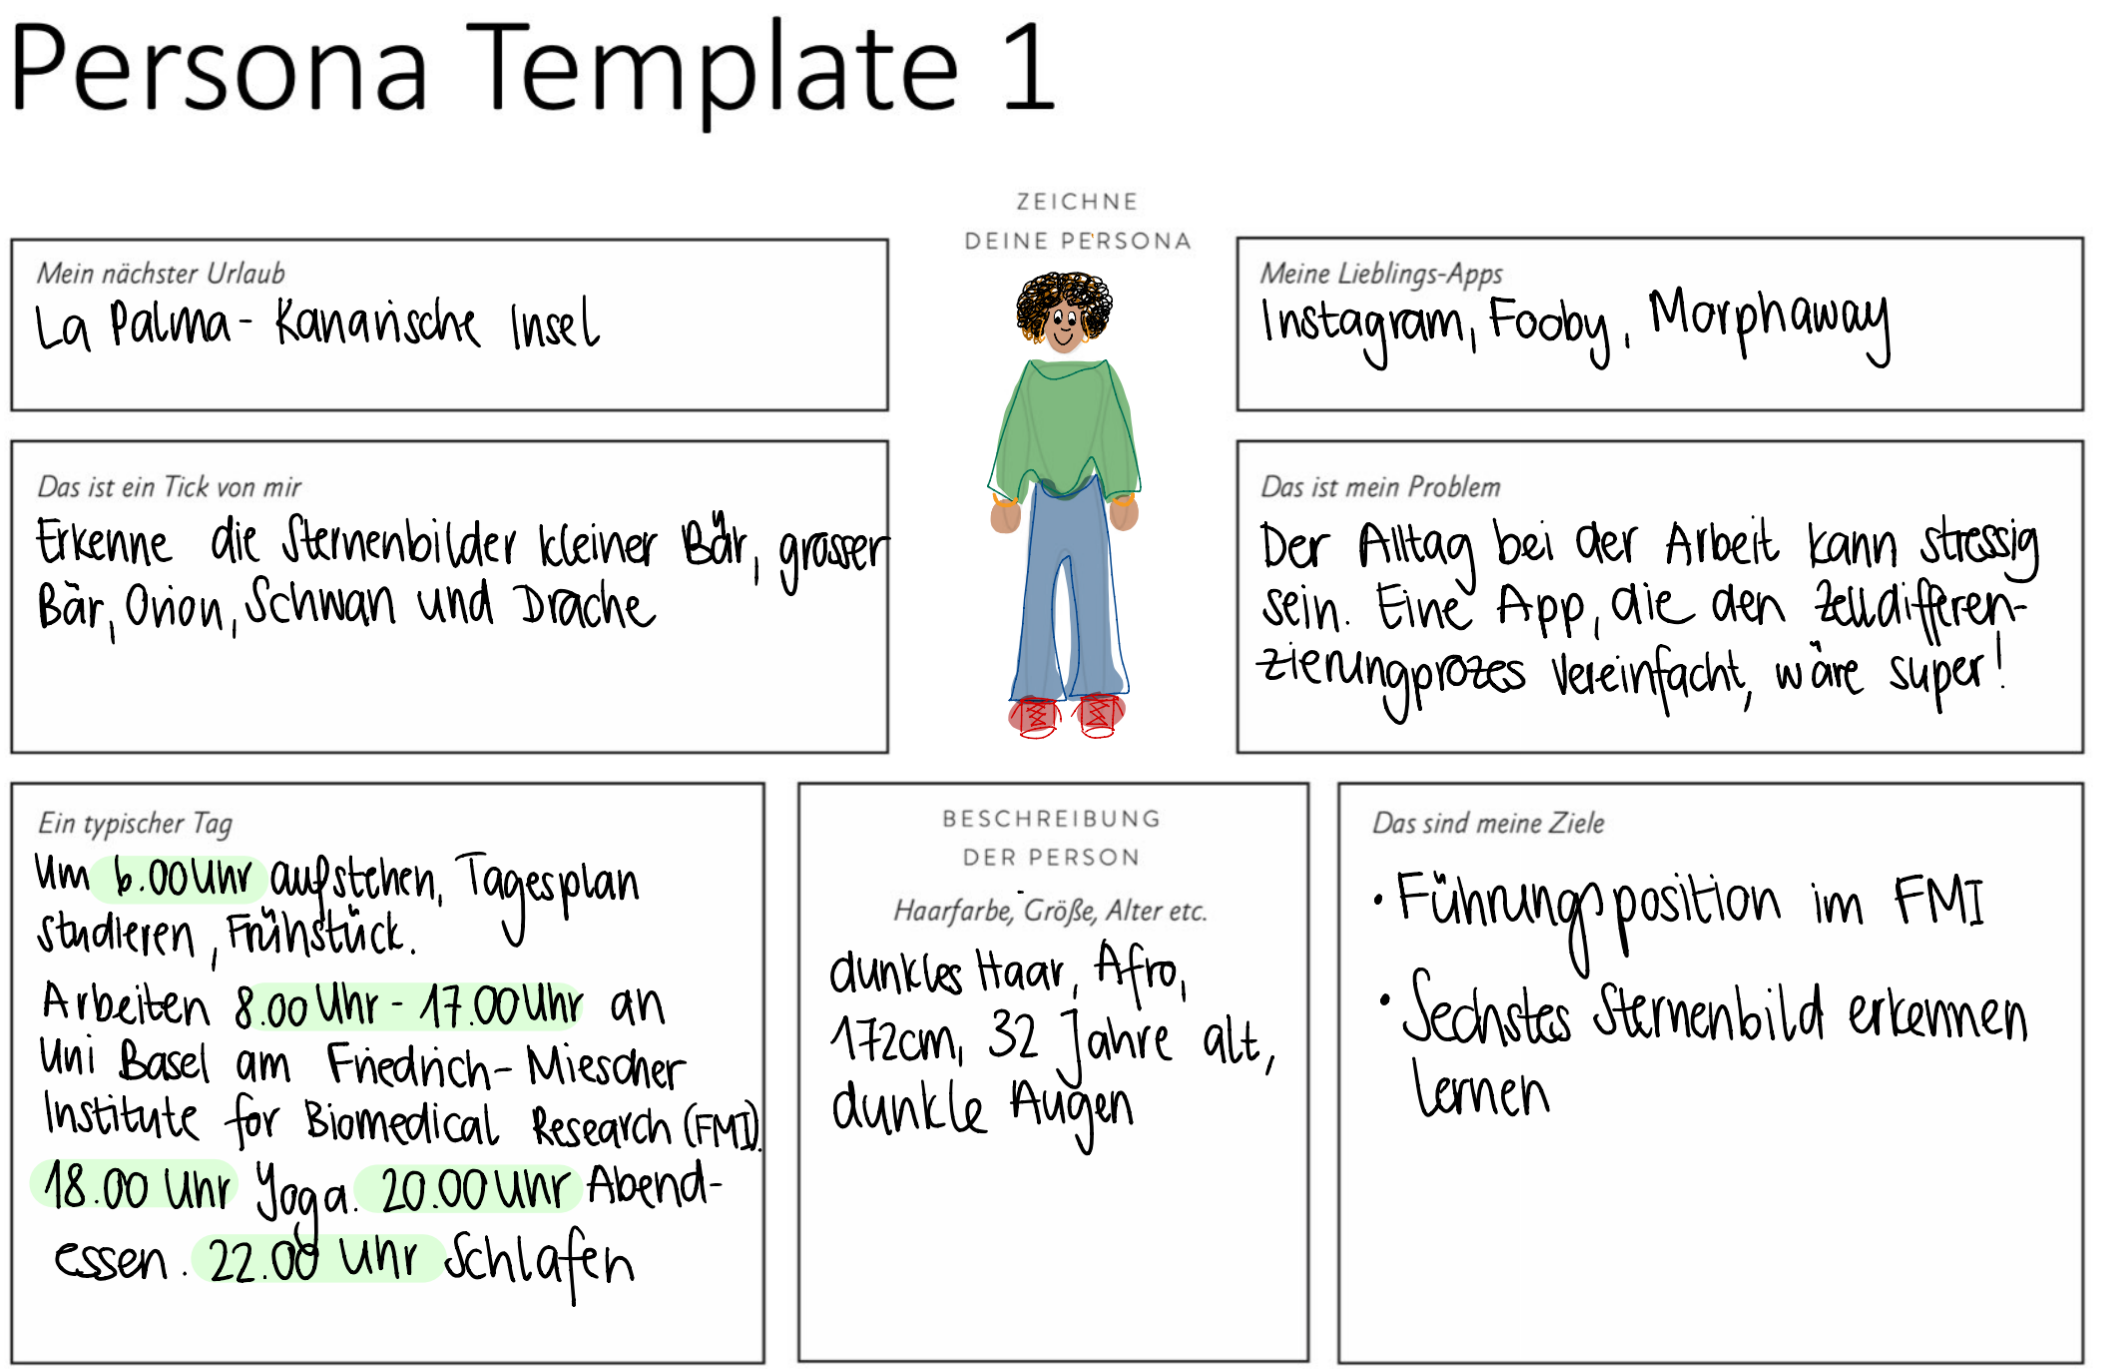 Persona Template 1
ZEICHNE
DEINE PERSONA
Mein nächster Urlaub
La Palma - Kanarische Insel
Meine Lieblings-Apps
Instagram, Fooby, Morphaway
Das ist ein Tick von mir
Erkenne die Sternenbilder kleiner Bär, grosser
Bär, Orion, Schwan und Drache
Das ist mein Problem
Der Alltag bei der Arbeit kann stressig
sein. Eine App, die den Zelldifferen-
zierungprozes vereinfacht, wäre super!
Ein typischer Tag
Um 6.00 Uhr aufstehen, Tagesplan
studieren, Frühstück.
Arbeiten 8.00 Uhr - 17.00 Uhr an
Uni Basel am Friedrich-Miescher
Institute for Biomedical Research (FMI).
18.00 Uhr Yoga. 20.00 Uhr Abend-
essen. 22.00 Uhr Schlafen
BESCHREIBUNG
DER PERSON
Haarfarbe, Größe, Alter etc.
dunkles Haar, Afro,
172cm, 32 Jahre alt,
dunkle Augen
Das sind meine Ziele
• Führungsposition im FMI
• Sechstes Sternenbild erkennen
lernen